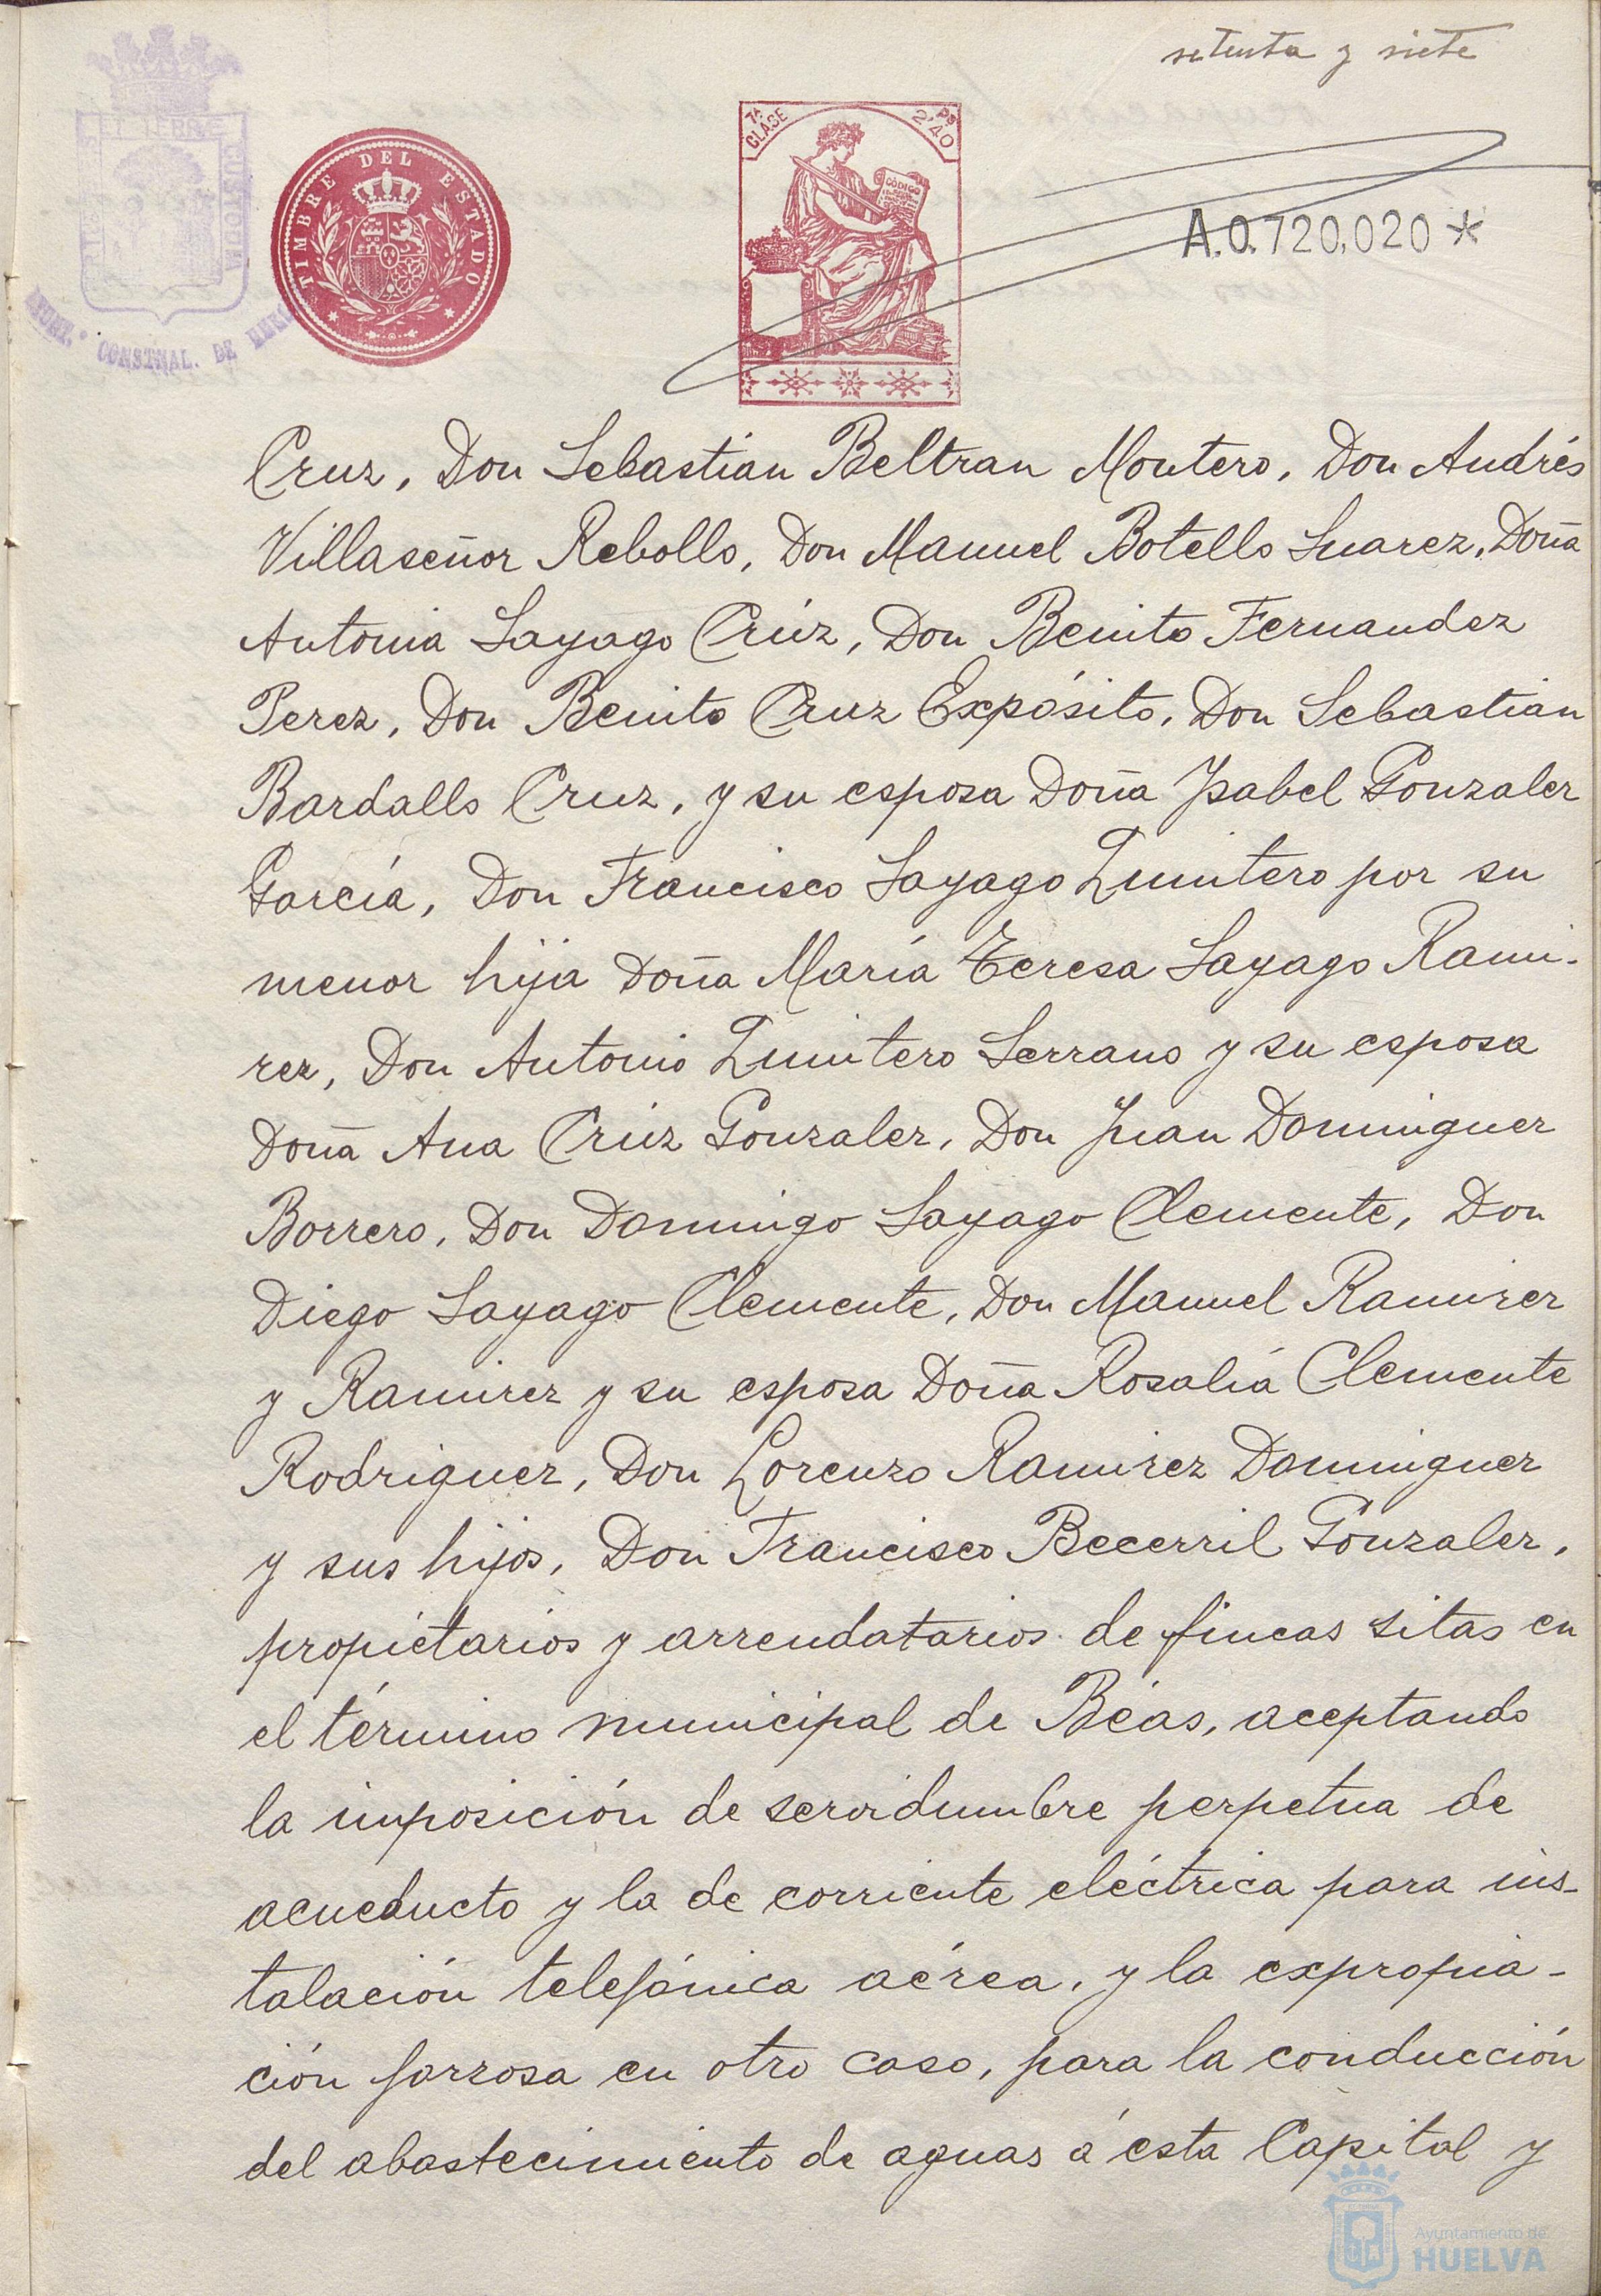 setenta y siete
TIMBRE DEL ESTADO
7ª CLASE
2'40 Ps
CÓDIGO
A.0.720,020*
CONSTNAL. DE
Cruz, Don Sebastián Beltran Montero, Don Andrés
Villaseñor Rebollo, Don Manuel Botello Suarez, Doña
Antonia Sayago Crúz, Don Benito Fernandez
Perez, Don Benito Cruz Expósito, Don Sebastián
Bardallo Cruz, y su esposa Doña Ysabel Gonzalez
García, Don Francisco Sayago Quintero por su
menor hija Doña María Teresa Sayago Rami-
rez, Don Antonio Quintero Serrano y su esposa
Doña Ana Crúz Gonzalez, Don Juan Dominguez
Borrero, Don Domingo Sayago Clemente, Don
Diego Sayago Clemente, Don Manuel Ramirez
y Ramirez y su esposa Doña Rosalía Clemente
Rodriguez, Don Lorenzo Ramirez Dominguez
y sus hijos, Don Francisco Becerril Gonzalez,
propietarios y arrendatarios de fincas sitas en
el término municipal de Béas, aceptando
la imposición de servidumbre perpetua de
acueducto y la de corriente eléctrica para ins-
talación telefónica aérea, y la expropia-
ción forzosa en otro caso, para la conducción
del abastecimiento de aguas á esta Capital y
Ayuntamiento de
HUELVA